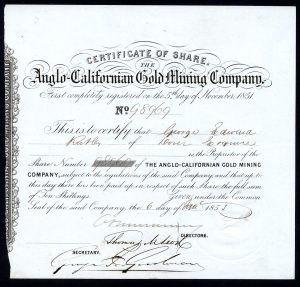 CERTIFICATE OF SHARE.
THE
Anglo-Californian Gold Mining Company.
First completely registered on the 5th day of November, 1851.
No 98969
This is to certify that George Edward
of Esquire
is the Proprietor of the
Share Number OF THE ANGLO-CALIFORNIAN GOLD MINING
COMPANY, subject to the regulations of the said Company and that up
to this day there has been paid up in respect of such Share, the full sum
of Ten Shillings Given under the Common
Seal of the said Company, the 6 day of 1853
DIRECTORS.
Thomas
SECRETARY.
George